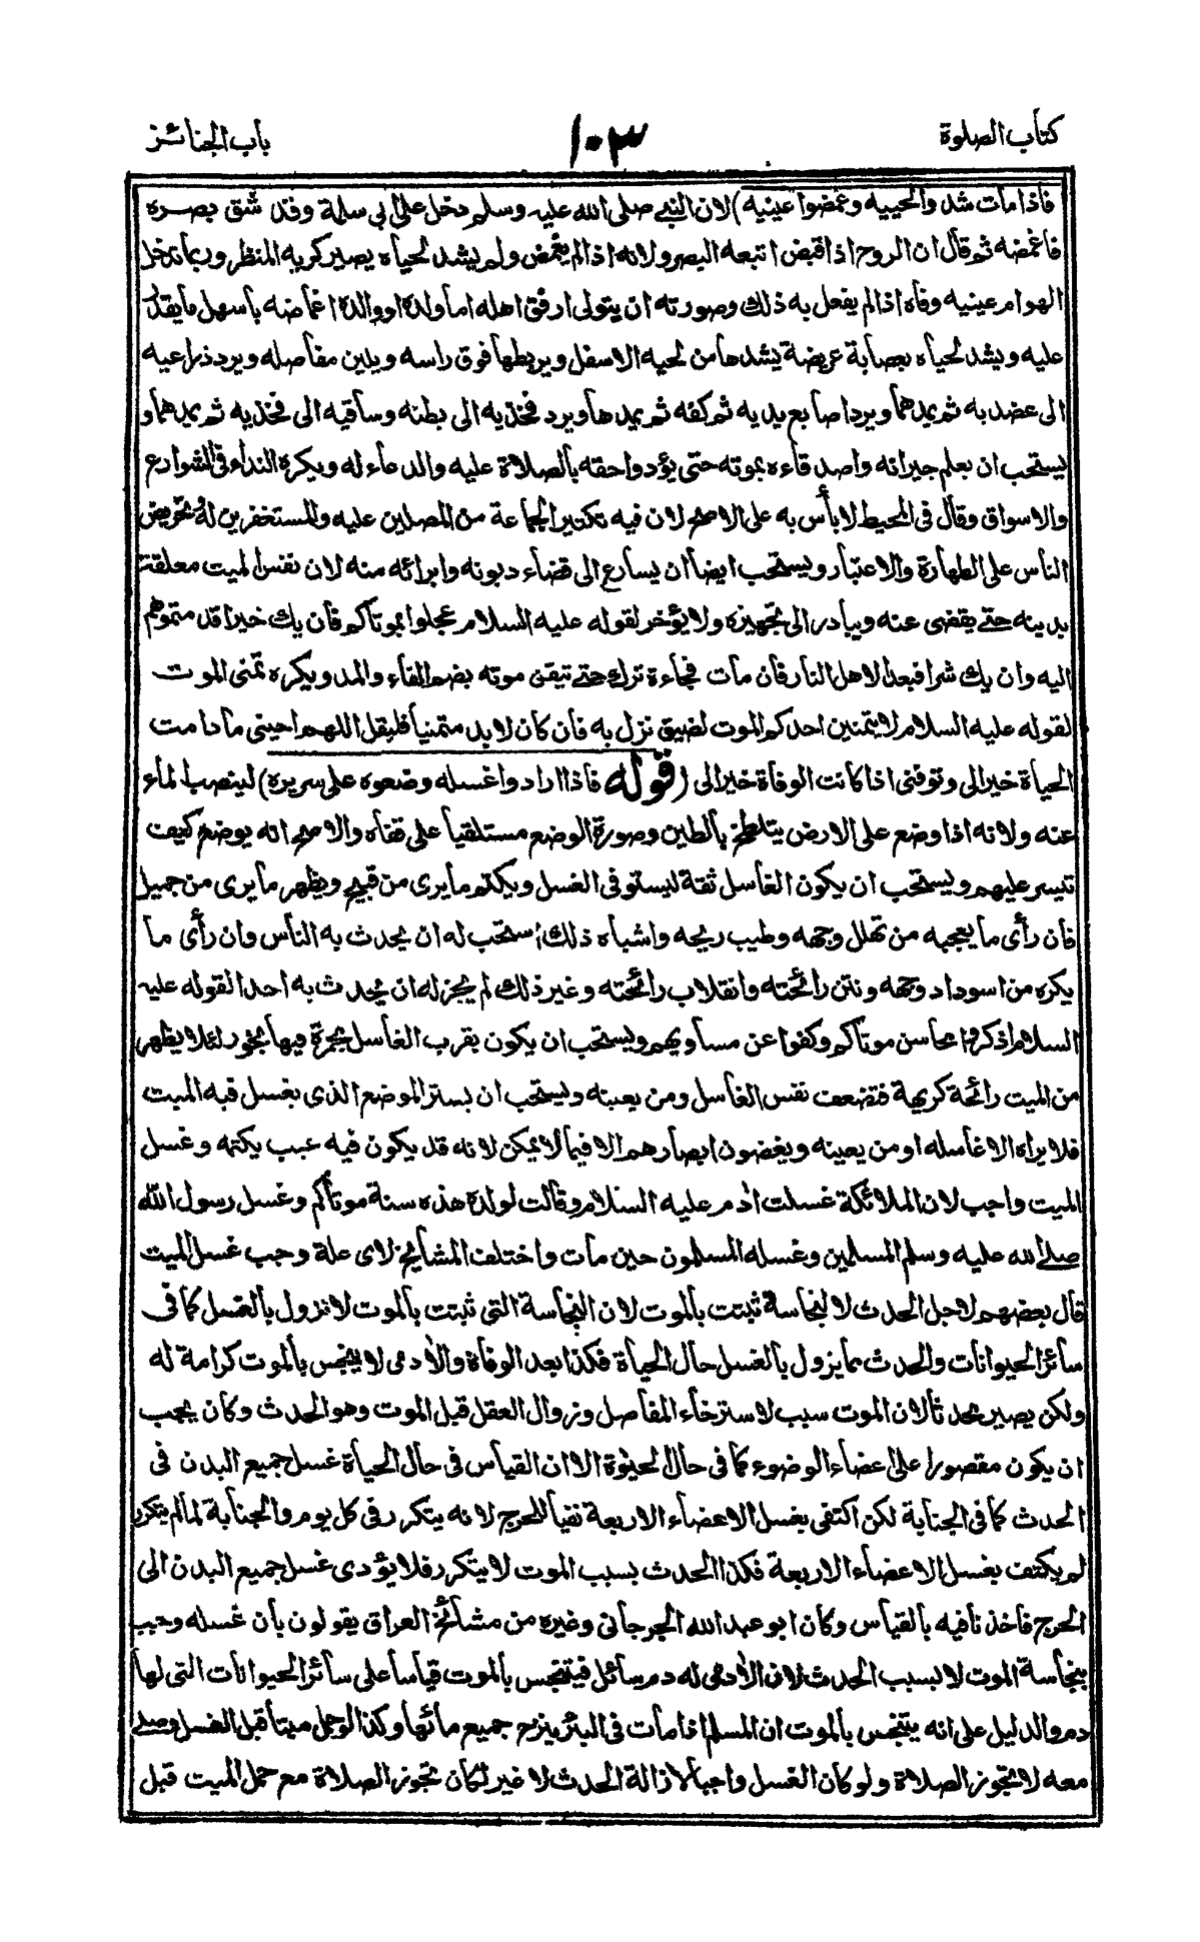 كتاب الصلوة
١٠٣
باب الجنائز
فاذا مات شد والحييه وغمضوا عينيه) لان النبى صلى الله عليه وسلم دخل على ابى سلمة وقد شق بصره
فاغمضه ثم قال ان الروح اذا قبض اتبعه البصر ولانه اذا لم يغمض ولم يشد لحياه يصير كريه المنظر وربما تدخل
الهوام عينيه وفاه اذا لم يفعل به ذلك وصورته ان يتولى ارفق اهله اما ولده او والده اغماضه باسهل ما يقدر
عليه ويشد لحياه بعصابة عريضة يشدها من لحيه الاسفل ويربطها فوق راسه ويلين مفاصله ويرد ذراعيه
الى عضديه ثم يمدهما ويرد اصابع يديه ثم كفه ثم يمدها ويرد فخذيه الى بطنه وساقيه الى فخذيه ثم يمدهما و
يستحب ان يعلم جيرانه واصدقاءه بموته حتى يؤدوا حقه بالصلاة عليه والدعاء له ويكره النداء فى الشوارع
والاسواق وقال فى المحيط لا بأس به على الاصح لان فيه تكثير الجماعة من المصلين عليه والمستغفرين له وتحريض
الناس على الطهارة والاعتبار ويستحب ايضا ان يسارع الى قضاء ديونه وابرائه منه لان نفس الميت معلقة
بدينه حتى يقضى عنه ويبادر الى تجهيزه ولا يؤخر لقوله عليه السلام عجلوا بموتاكم فان يك خيرا قدمتموهم
اليه وان يك شرا فبعدا لاهل النار فان مات فجاءة ترك حتى تيقن موته بضم الفاء والمد ويكره تمنى الموت
لقوله عليه السلام لا يتمنين احدكم الموت لضيق نزل به فان كان لا بد متمنيا فليقل اللهم احينى ما دامت
الحياة خيرا لى وتوفنى اذا كانت الوفاة خيرا لى (قوله فاذا ارادوا غسله وضعوه على سريره) لينصب الماء
عنه ولانه اذا وضع على الارض يتلطخ بالطين وصورة الوضع مستلقيا على قفاه والاصح انه يوضع كيف
تيسر عليهم ويستحب ان يكون الغاسل ثقة ليستوفى الغسل ويكتم ما يرى من قبيح ويظهر ما يرى من جميل
فان رأى ما يعجبه من تهلل وجهه وطيب ريحه واشباه ذلك استحب له ان يحدث به الناس وان رأى ما
يكره من اسوداد وجهه ونتن رائحته وانقلاب رائحته وغير ذلك لم يجز له ان يحدث به احدا لقوله عليه
السلام اذكروا محاسن موتاكم وكفوا عن مساويهم ويستحب ان يكون بقرب الغاسل مجمرة فيها بخور لئلا يظهر
من الميت رائحة كريهة فتضعف نفس الغاسل ومن يعينه ويستحب ان يستر الموضع الذى يغسل فيه الميت
فلا يراه الا غاسله او من يعينه ويغضون ابصارهم الا فيما لا يمكن لانه قد يكون فيه عيب يكتمه وغسل
الميت واجب لان الملائكة غسلت ادم عليه السلام وقالت لولده هذه سنة موتاكم وغسل رسول الله
صلى الله عليه وسلم المسلمين وغسله المسلمون حين مات واختلف المشايخ لاى علة وجب غسل الميت
قال بعضهم لاجل الحدث لا لنجاسة ثبتت بالموت لان النجاسة التى ثبتت بالموت لا تزول بالغسل كما فى
سائر الحيوانات والحدث مما يزول بالغسل حال الحياة فكذا بعد الوفاة والادمى لا ينجس بالموت كرامة له
ولكن يصير محدثا لان الموت سبب لاسترخاء المفاصل وزوال العقل قبل الموت وهو الحدث وكان يجب
ان يكون مقصورا على اعضاء الوضوء كما فى حال الحيوة الا ان القياس فى حال الحياة غسل جميع البدن فى
الحدث كما فى الجنابة لكن اكتفى بغسل الاعضاء الاربعة نفيا للحرج لانه يتكرر فى كل يوم والجنابة لما لم يتكرر
لم يكتف بغسل الاعضاء الاربعة فكذا الحدث بسبب الموت لا يتكرر فلا يؤدى غسل جميع البدن الى
الحرج فاخذنا فيه بالقياس وكان ابو عبد الله الجرجانى وغيره من مشائخ العراق يقولون بان غسله وجب
بنجاسة الموت لا بسبب الحدث لان الادمى له دم سائل فيتنجس بالموت قياسا على سائر الحيوانات التى لها
دم والدليل على انه يتنجس بالموت ان المسلم اذا مات فى البئر ينزح جميع مائها وكذا لو حمل ميتا قبل الغسل وصلى
معه لا تجوز الصلاة ولو كان الغسل واجبا لازالة الحدث لا غير لكان تجوز الصلاة مع حمل الميت قبل